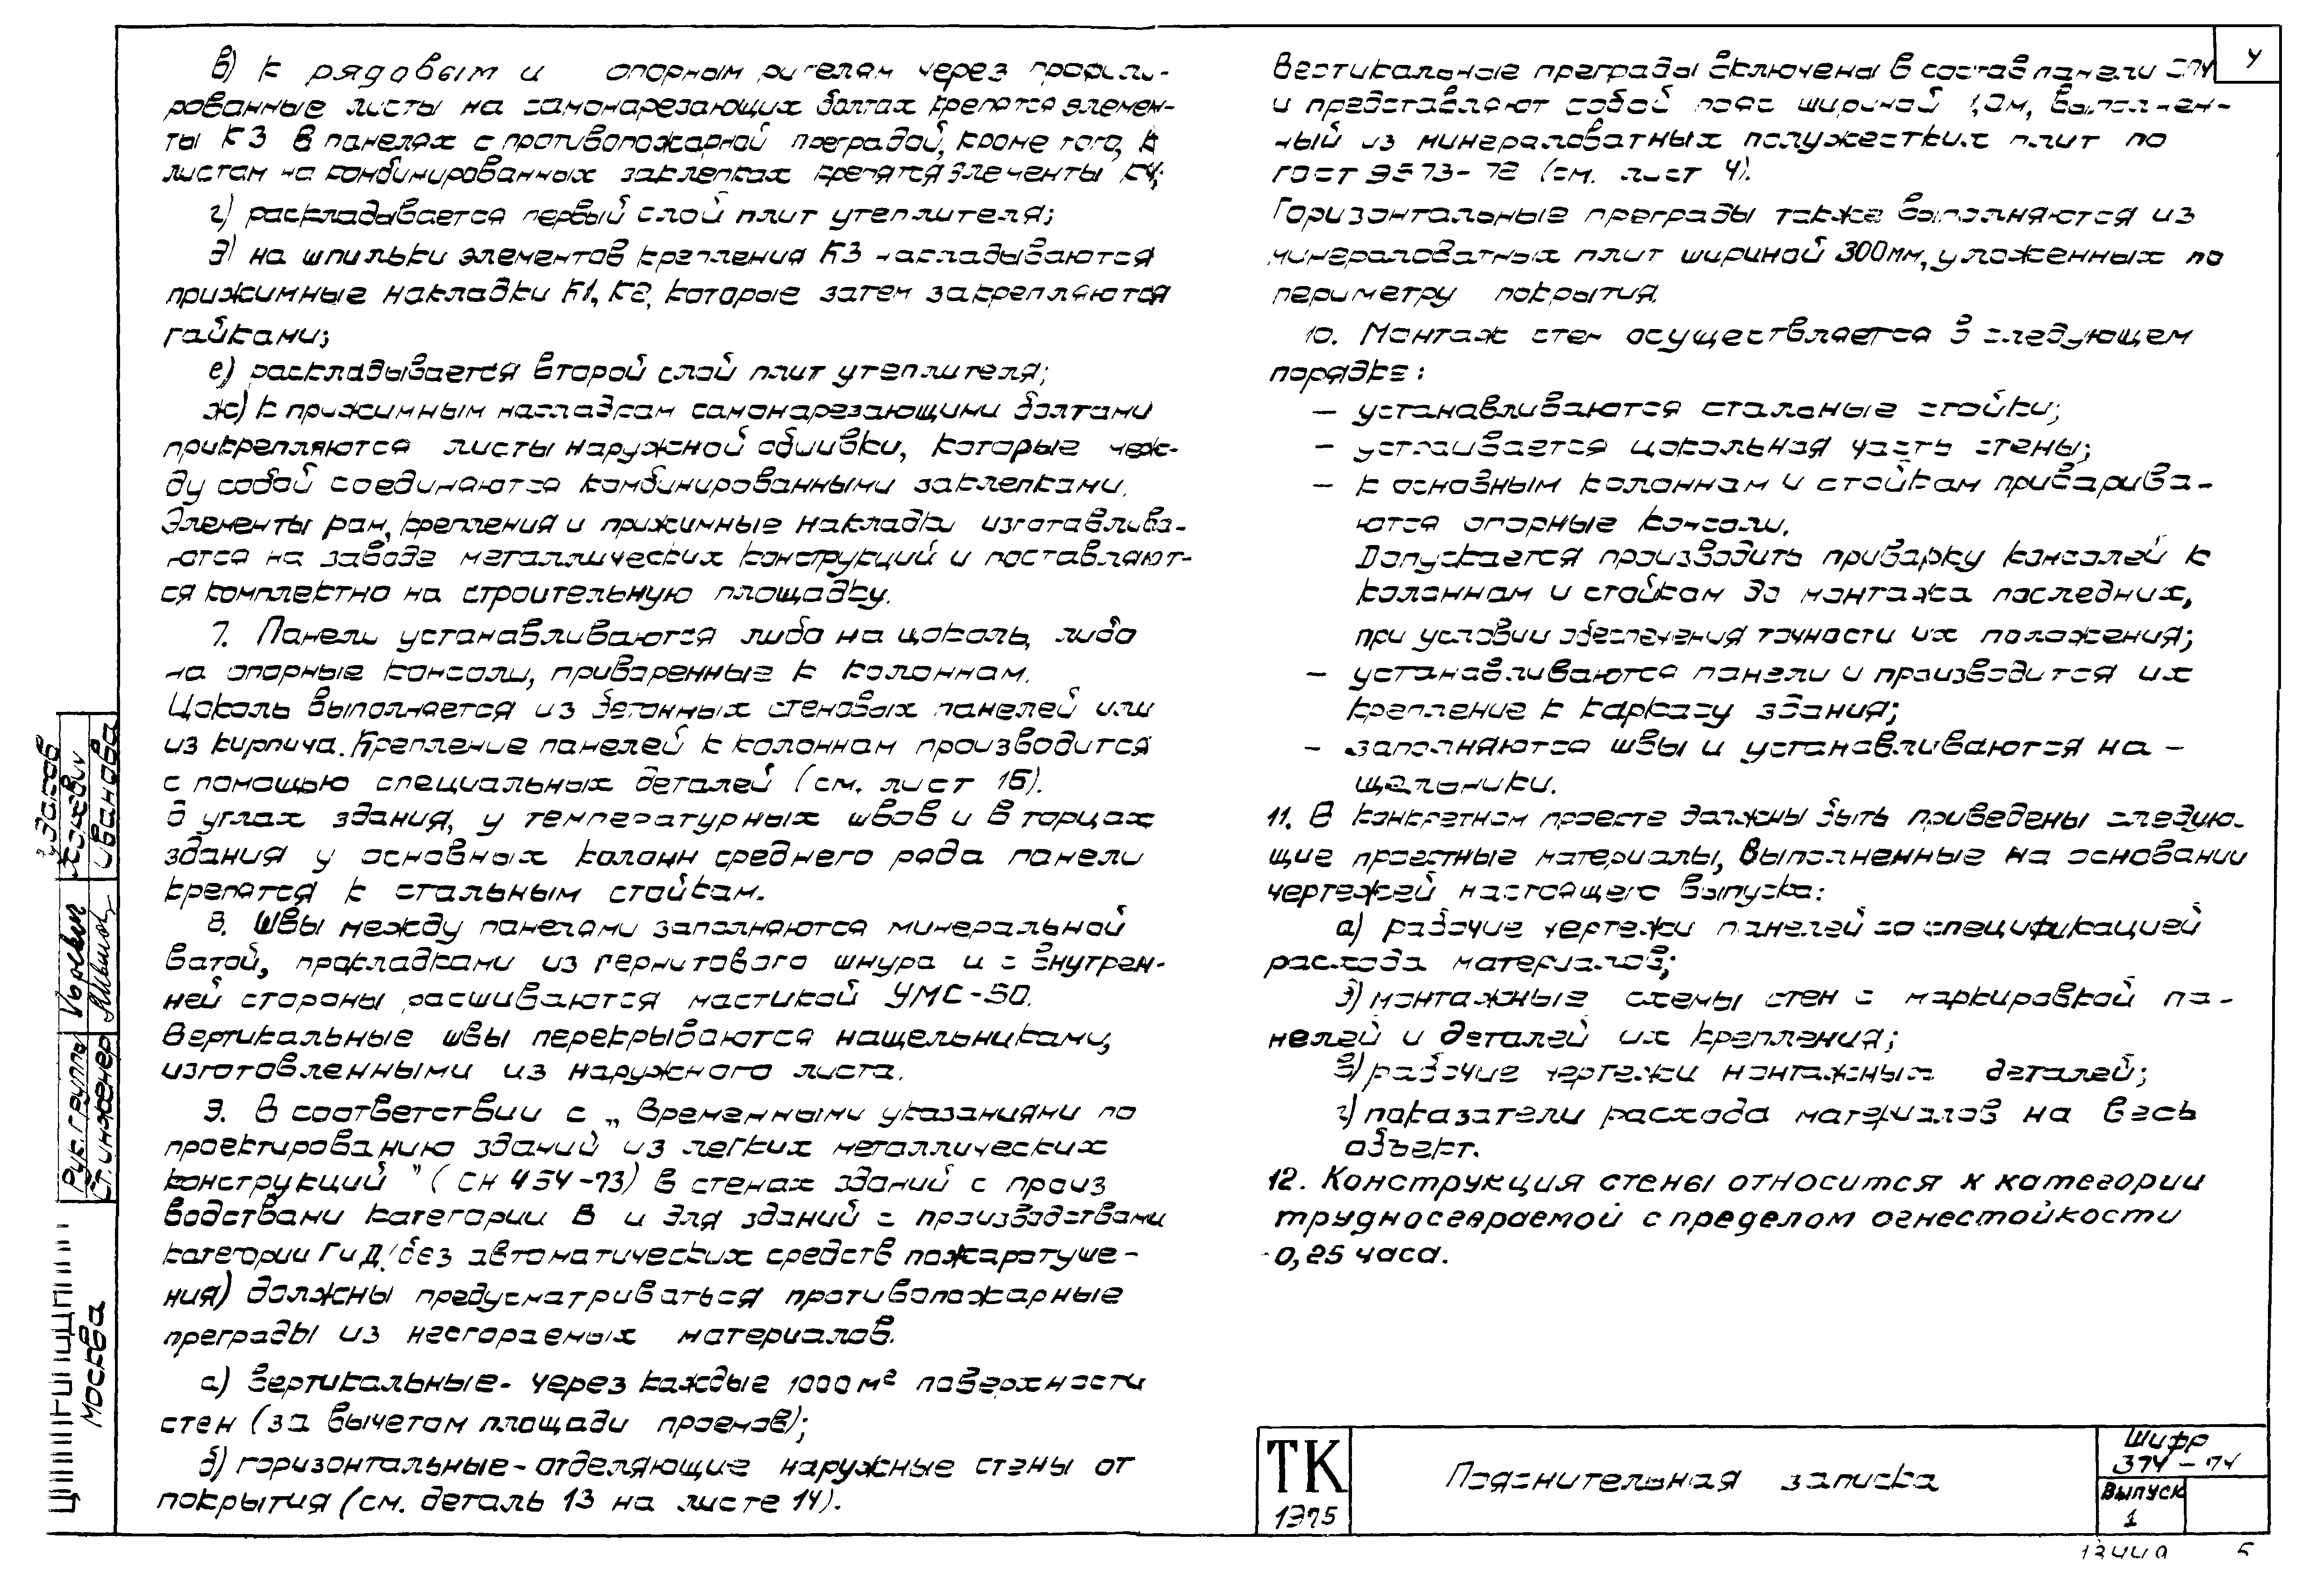 в) к рядовым и опорным ригелям через профили-
рованные листы на самонарезающих болтах крепятся элемен-
ты К3 В панелях с противопожарной преградой, кроме того, к
листам на комбинированных заклепках крепятся элементы К4;
г) раскладывается первый слой плит утеплителя;
д) на шпильки элементов крепления К3 накладываются
прижимные накладки К1, К2, которые затем закрепляются
гайками;
е) раскладывается второй слой плит утеплителя;
ж) к прижимным накладкам самонарезающими болтами
прикрепляются листы наружной обшивки, которые меж-
ду собой соединяются комбинированными заклепками.
Элементы рам, крепления и прижимные накладки изготавлива-
ются на заводе металлических конструкций и поставляют-
ся комплектно на строительную площадку.
7. Панели устанавливаются либо на цоколь, либо
на опорные консоли, приваренные к колоннам.
Цоколь выполняется из бетонных стеновых панелей или
из кирпича. Крепление панелей к колоннам производится
с помощью специальных деталей (см. лист 16).
В углах здания, у температурных швов и в торцах
здания у основных колонн среднего ряда панели
крепятся к стальным стойкам.
8. Швы между панелями заполняются минеральной
ватой, прокладками из гернитового шнура и с внутрен-
ней стороны расшиваются мастикой УМС-50.
Вертикальные швы перекрываются нащельниками,
изготовленными из наружного листа.
9. В соответствии с „ Временными указаниями по
проектированию зданий из легких металлических
конструкций " ( СН 454-73) в стенах зданий с произ
водствами категории В и для зданий с производствами
категории Г и Д (без автоматических средств пожаротуше-
ния) должны предусматриваться противопожарные
преграды из несгораемых материалов.
а) вертикальные- через каждые 1000 м² поверхности
стен (за вычетом площади проемов);
б) горизонтальные- отделяющие наружные стены от
покрытия (см. деталь 13 на листе 14).
Вертикальные преграды включены в состав панели СПУ
и представляют собой пояс шириной 1,0м, выполнен-
ный из минераловатных полужестких плит по
гост 9573-72 (см. лист 4).
Горизонтальные преграды также выполняются из
минераловатных плит шириной 300мм, уложенных по
периметру покрытия.
10. Монтаж стен осуществляется в следующем
порядке:
– устанавливаются стальные стойки;
– устраивается цокольная часть стены;
– к основным колоннам и стойкам приварива-
ются опорные консоли.
Допускается производить приварку консолей к
колоннам и стойкам до монтажа последних,
при условии обеспечения точности их положения;
– устанавливаются панели и производится их
крепление к каркасу здания;
– заполняются швы и устанавливаются на-
щельники.
11. В конкретном проекте должны быть приведены следую-
щие проектные материалы, выполненные на основании
чертежей настоящего выпуска:
а) рабочие чертежи панелей со спецификацией
расхода материалов;
б) монтажные схемы стен с маркировкой па-
нелей и деталей их крепления;
в) рабочие чертежи монтажных деталей;
г) показатели расхода материалов на весь
объект.
12. Конструкция стены относится к категории
трудносгораемой с пределом огнестойкости
0,25 часа.
4
Рук. группы
Ст. инженер
Иванова
Москва
ТК
1975
Пояснительная записка
Шифр
374-74
Выпуск
1
13449 5